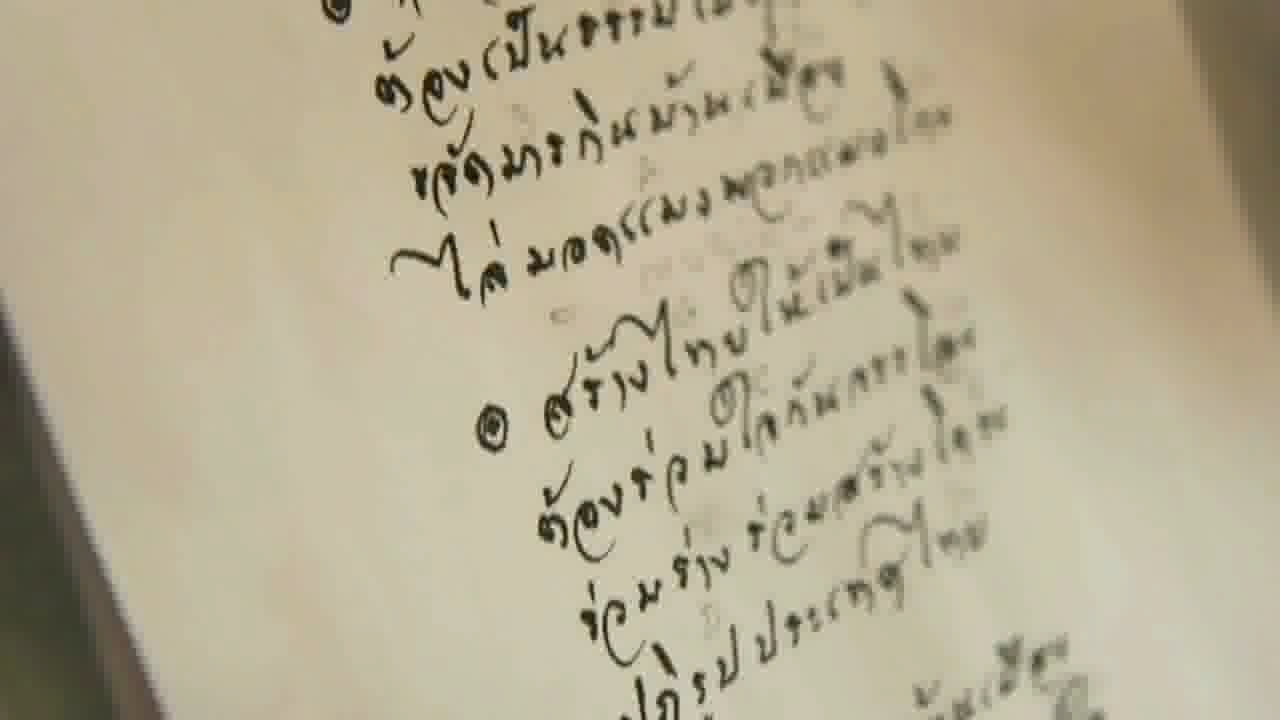 ต้องเป็นธรรม
ขจัดมารกินบ้านเมือง
ไล่มอดแมงพวกแผงโกง
๏ สร้างไทยให้เป็นไทย
ต้องร่วมใจกัน
ร่วมร่าง ร่วมสร้างโครง
ปฏิรูปประเทศไทย
บ้านเมือง